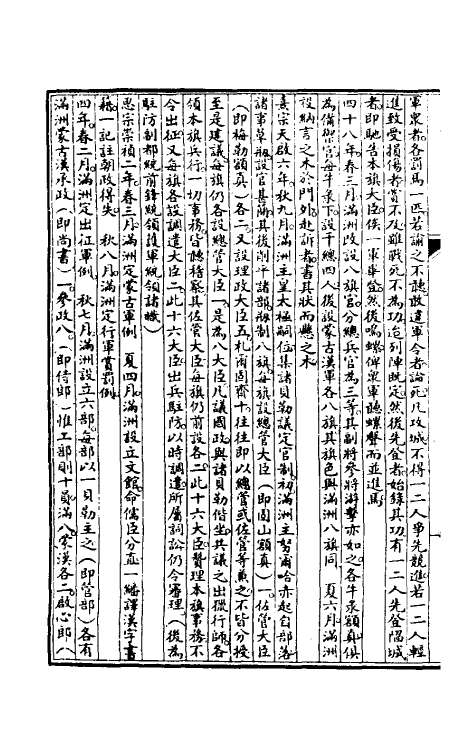 軍衆者各罰馬一匹若諭之不聽故違軍令者論死凡攻城不得一二人爭先競進若一二人輕
進致受損傷者賞不及雖戰死不為功迨列陣既定然後先登者始錄其功有一二人先登陷城
者即馳告本旗大臣俟一軍畢登然後鳴螺俾衆軍聽螺聲而並進焉
四十八年春三月滿洲改設八旗官分總兵官為三等其副將參將游擊亦如之各牛彔額真俱
為備禦官每牛彔下設千總四人後設蒙古漢軍各八旗其旗色與滿洲八旗同　夏六月滿洲
設納言之木於門外赴訴者書其狀而懸之木
熹宗天啟六年秋九月滿洲主皇太極嗣位集諸貝勒議定官制初滿洲主努爾哈赤起自部落
諸事草剏設官甚簡其後削平諸部剏制八旗每旗設總管大臣（即固山額真）一佐管大臣
（即梅勒額真）各二又設理政大臣五札爾固齊十往往即以總管或佐管等兼之不皆分授
至是建議每旗仍各設總管大臣一是為八大臣凡議國政與諸貝勒偕坐共議之出獵行師各
領本旗兵行一切事務皆聽稽察其佐管大臣每旗仍前設各二此十六大臣贊理本旗事務不
令出征又每旗各設調遣大臣二此十六大臣出兵駐防以時調遣所屬詞訟仍令審理（後為
駐防制都統前鋒統領護軍統領諸職）
思宗崇禎二年春三月滿洲定蒙古軍例　夏四月滿洲設立文館命儒臣分直一繙譯漢字書
籍一記註朝政得失　秋八月滿洲定行軍賞罰例
四年春二月滿洲定出征軍例　秋七月滿洲設立六部每部以一貝勒主之（即管部）各有
滿洲蒙古漢承政（即尚書）一參政八（即侍郎）惟工部則十員滿八蒙漢各二啟心郎（八